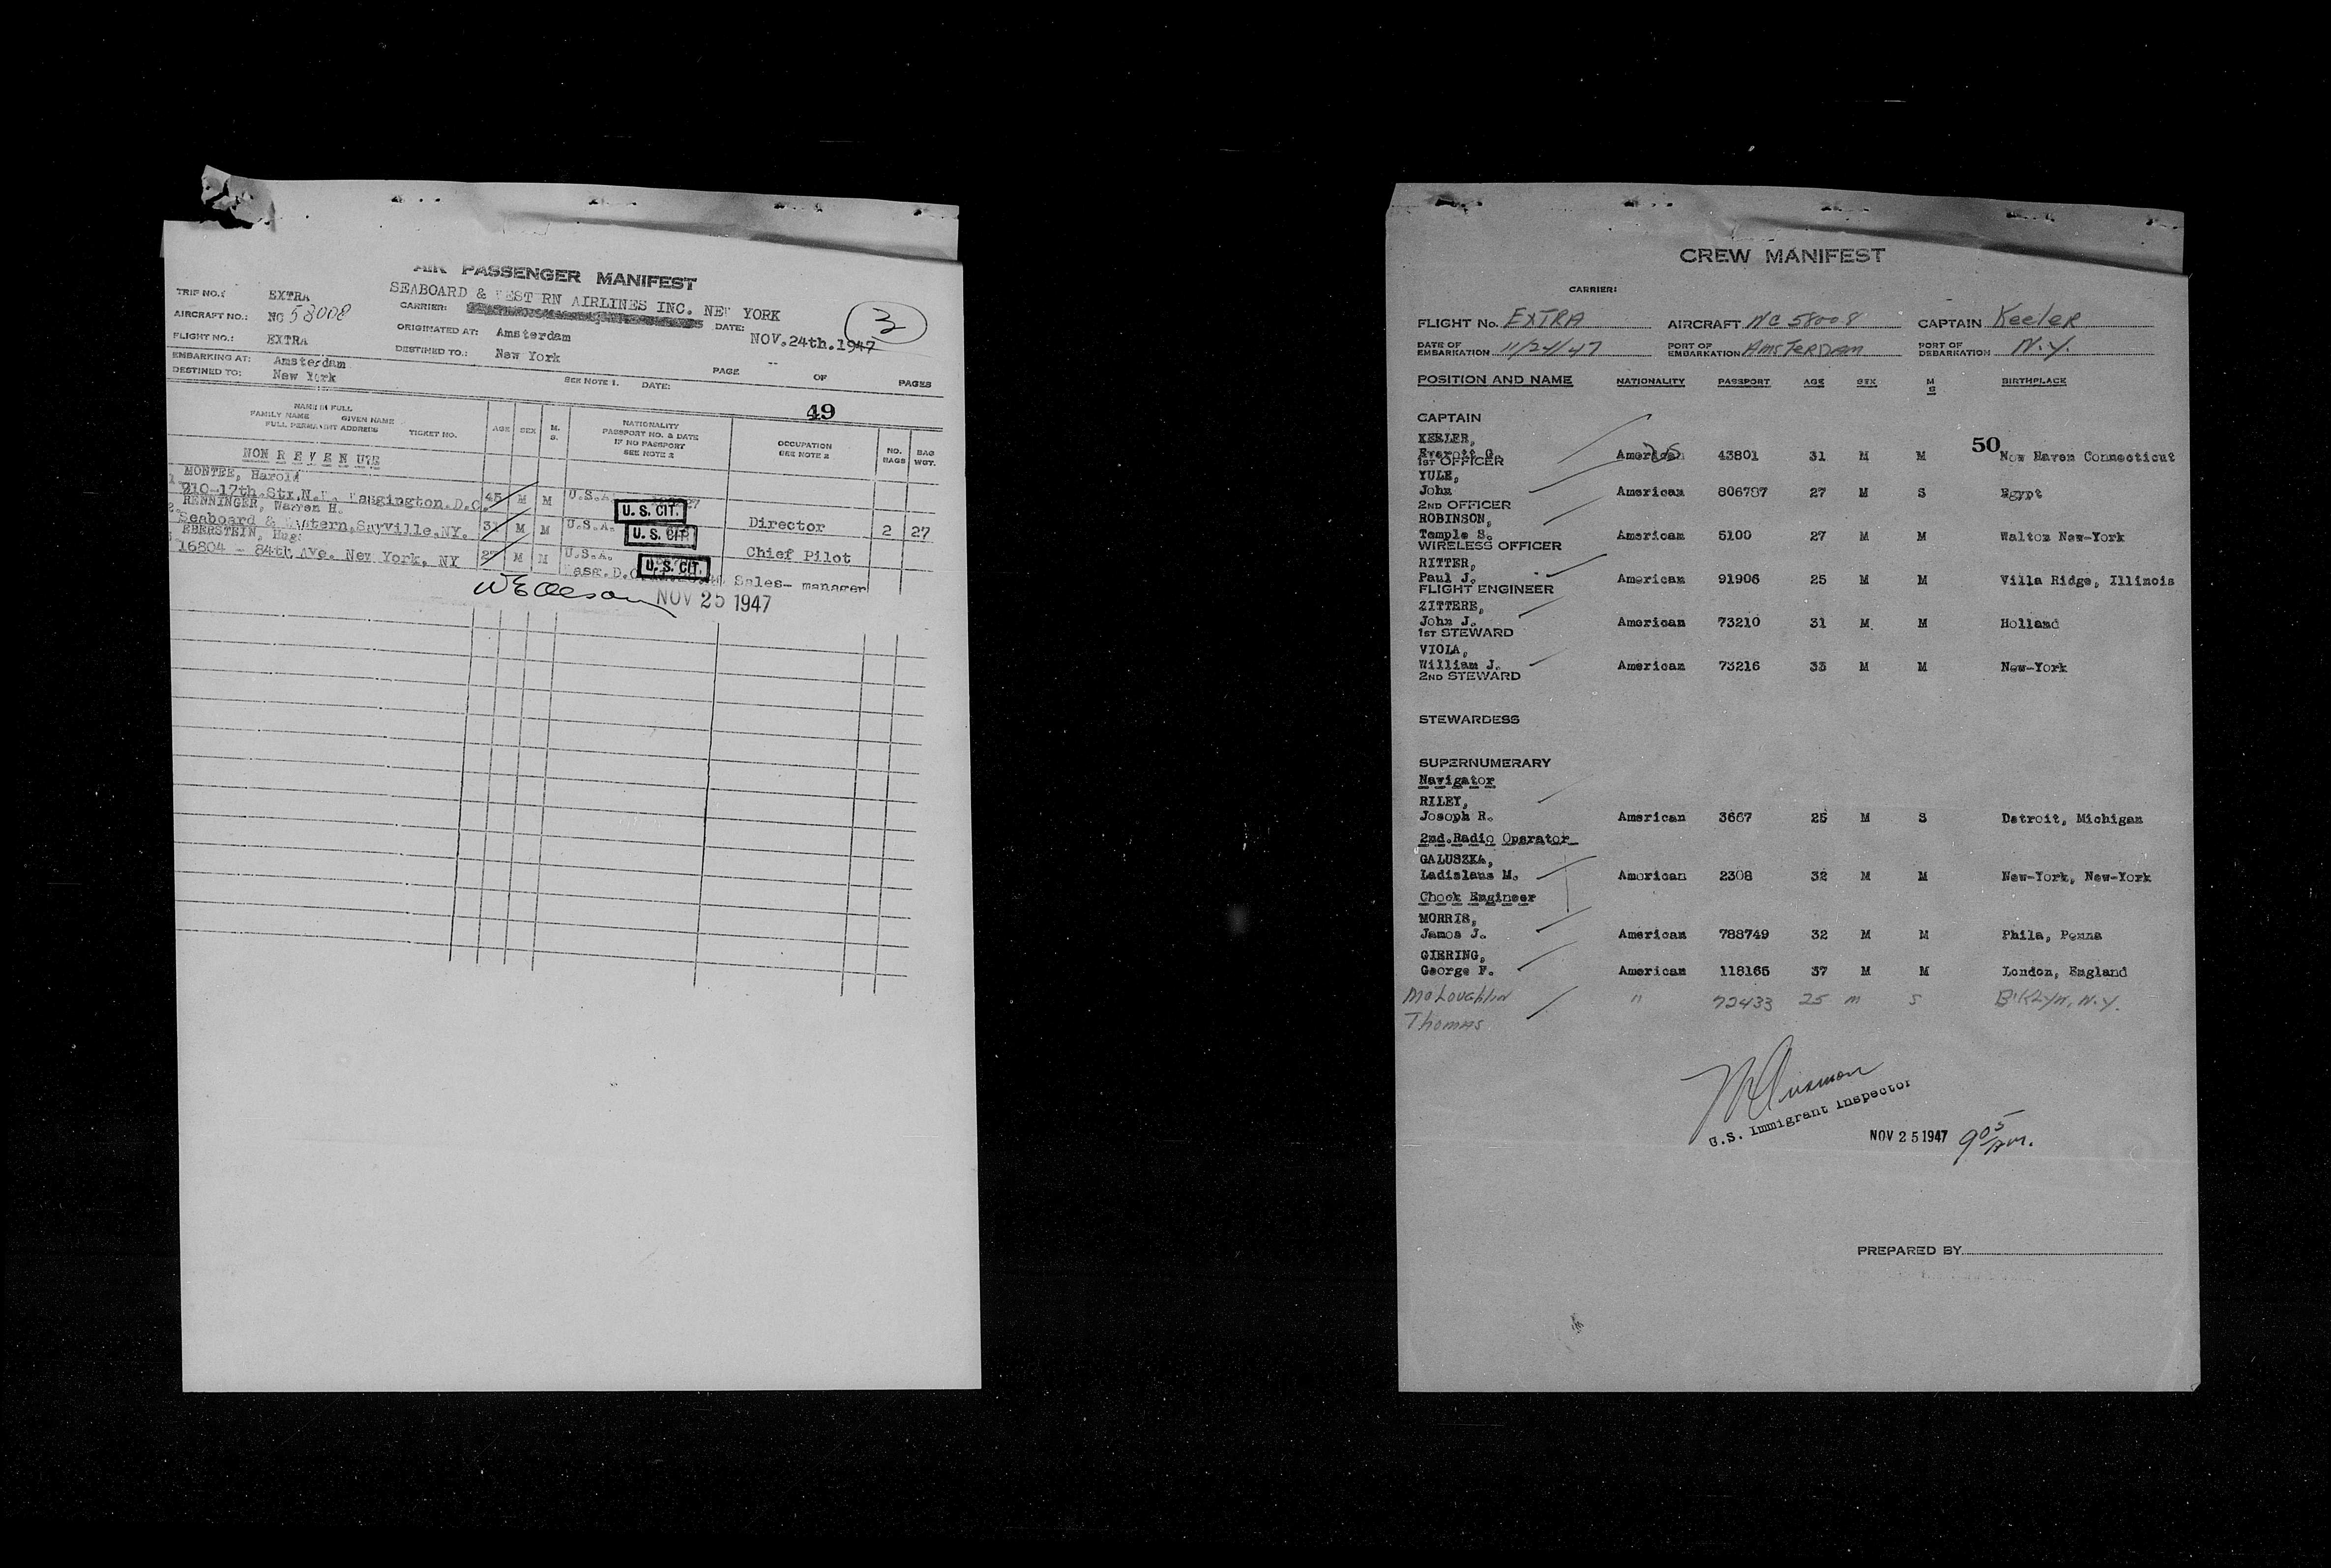 AIR PASSENGER MANIFEST
SEABOARD & WEST RN AIRLINES INC. NEW YORK
TRIP NO.: EXTRA
CARRIER:
DATE: NOV.24th.1947
3
AIRCRAFT NO.: NC 58008
ORIGINATED AT: Amsterdam
FLIGHT NO.: EXTRA
DESTINED TO.: New York
EMBARKING AT: Amsterdam
DESTINED TO: New York
SEE NOTE 1. DATE: PAGE -- OF PAGES
49
NAME IN FULL
FAMILY NAME GIVEN NAME
FULL PERMANENT ADDRESS TICKET NO.
AGE SEX M. S.
NATIONALITY
PASSPORT NO. & DATE
IF NO PASSPORT
SEE NOTE 2
OCCUPATION
SEE NOTE 2
NO. BAGS
BAG WGT.
NON R E V E N U E
MONTEE, Harold
910-17th.Str.N.W. Wasgington.D.C. 45 M M U.S.A. U. S. CIT. Director 2 27
RENNINGER, Warren H.
Seaboard & Western,Sayville,NY. 31 M M U.S.A. U. S. CIT. Chief Pilot
EBERSTEIN, Hug
16804 - 84th Ave. New York, NY 27 M M U.S.A. U. S. CIT. Sales- manager
NOV 25 1947
CREW MANIFEST
CARRIER:
FLIGHT No. EXTRA AIRCRAFT NC 58008 CAPTAIN Keeler
DATE OF EMBARKATION 11/24/47 PORT OF EMBARKATION AMSTERDAM PORT OF DEBARKATION N.Y.
POSITION AND NAME NATIONALITY PASSPORT AGE SEX M S BIRTHPLACE
CAPTAIN
KEELER,
50
Everett G. American 43801 31 M M New Haven Connecticut
1ST OFFICER
YULE,
John American 806787 27 M S Egypt
2ND OFFICER
ROBINSON,
Temple S. American 5100 27 M M Walton New-York
WIRELESS OFFICER
RITTER,
Paul J. American 91906 25 M M Villa Ridge, Illinois
FLIGHT ENGINEER
ZITTERE,
John J. American 73210 31 M M Holland
1ST STEWARD
VIOLA,
William J. American 73216 33 M M New-York
2ND STEWARD
STEWARDESS
SUPERNUMERARY
Navigator
RILEY,
Joseph R. American 3667 25 M S Detroit, Michigan
2nd.Radio Operator
GALUSZKA,
Ladislaus M. American 2308 32 M M New-York, New-York
Check Engineer
MORRIS,
James J. American 788749 32 M M Phila, Penna
GIERING,
George F. American 118165 37 M M London, England
McLoughlin " 72433 25 M S B'KLYN, N.Y.
Thomas
U.S. Immigrant Inspector
NOV 25 1947 9 05 AM.
PREPARED BY